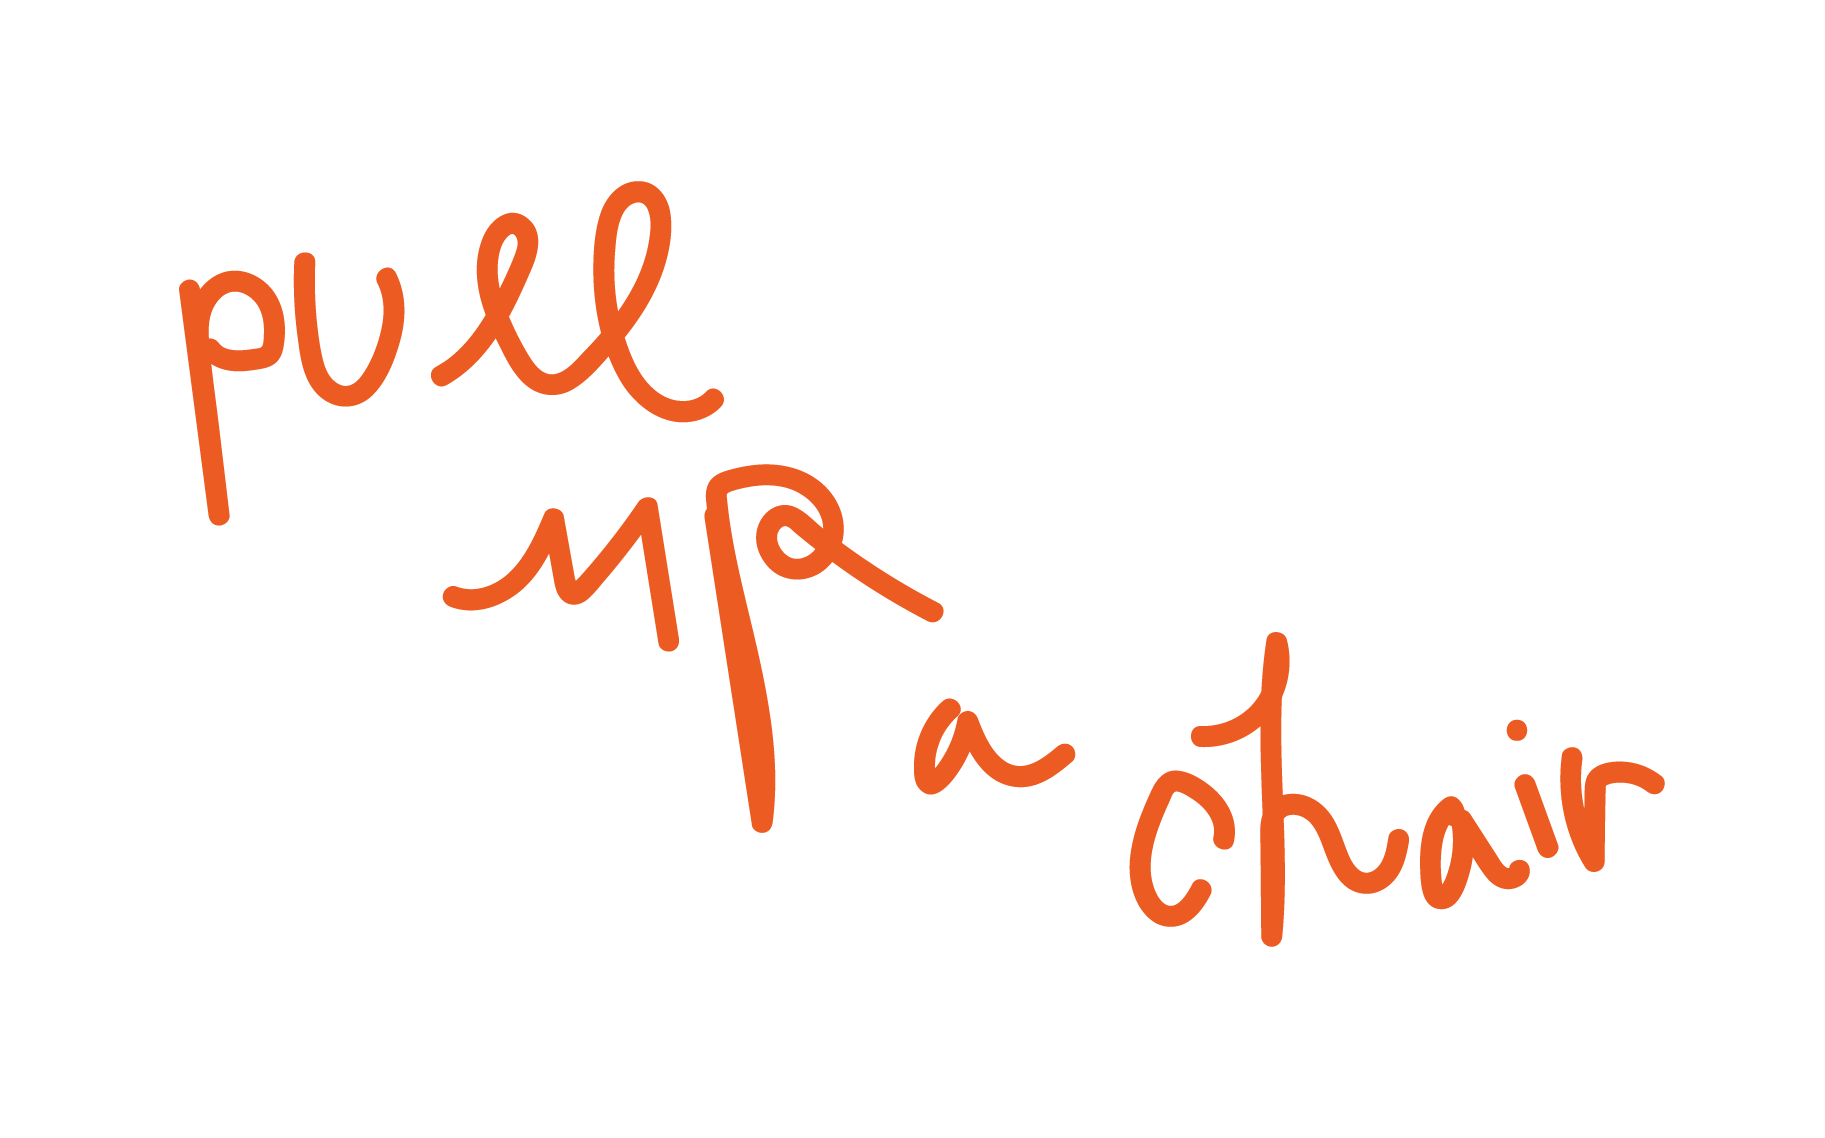 pull
up
a
chair